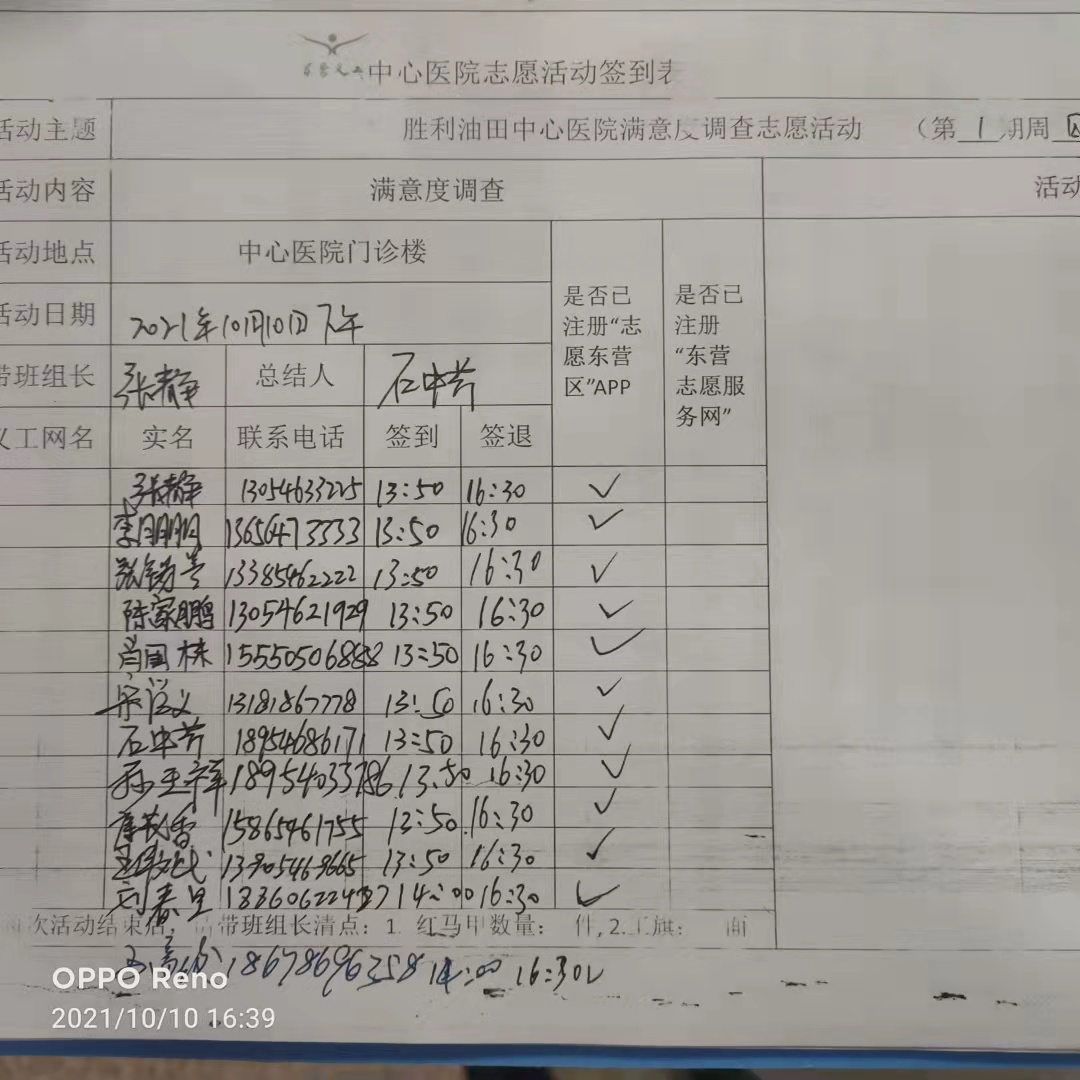 中心医院志愿活动签到表
活动主题 胜利油田中心医院满意度调查志愿活动 （第1期周四
活动内容 满意度调查 活动
活动地点 中心医院门诊楼
活动日期 2021年10月10日下午
是否已注册“志愿东营区”APP
是否已注册“东营志愿服务网”
带班组长 张静 总结人 石中芳
义工网名 实名 联系电话 签到 签退
张静 13054633225 13:50 16:30 ✓
李朋朋 13656473333 13:50 16:30 ✓
13385462222 13:50 16:30 ✓
陈家鹏 13054621929 13:50 16:30 ✓
肖国栋 15550506888 13:50 16:30 ✓
13181867778 13:50 16:30 ✓
石中芳 18954686171 13:50 16:30 ✓
孙玉祥 18954033786 13:50 16:30 ✓
15865461755 13:50 16:30 ✓
13:50 16:30 ✓
刘春里 14:00 16:30 ✓
次活动结束后，带班组长清点：1. 红马甲数量： 件，2.工旗： 面
18678696358 14:00 16:30 ✓
OPPO Reno
2021/10/10 16:39